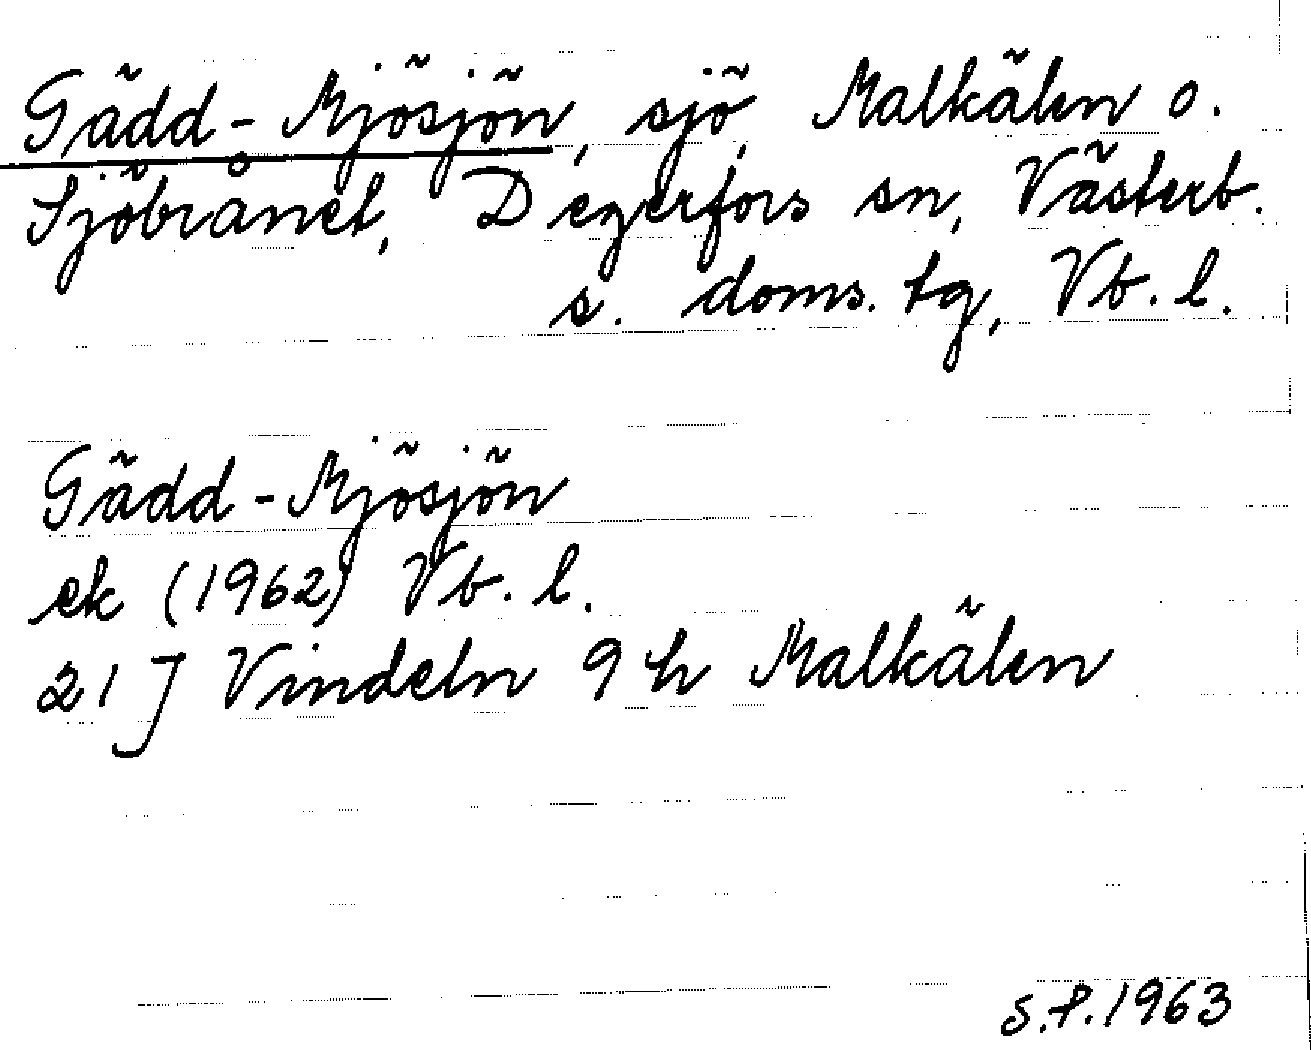 Gädd-Mjösjön, sjö, Malkälen o.
Sjöbrånet, Degerfors sn, Västerb.
s. doms. tg, Vb. l.
Gädd-Mjösjön
ek (1962) Vb. l.
21 J Vindeln 9 h Malkälen
S.P. 1963